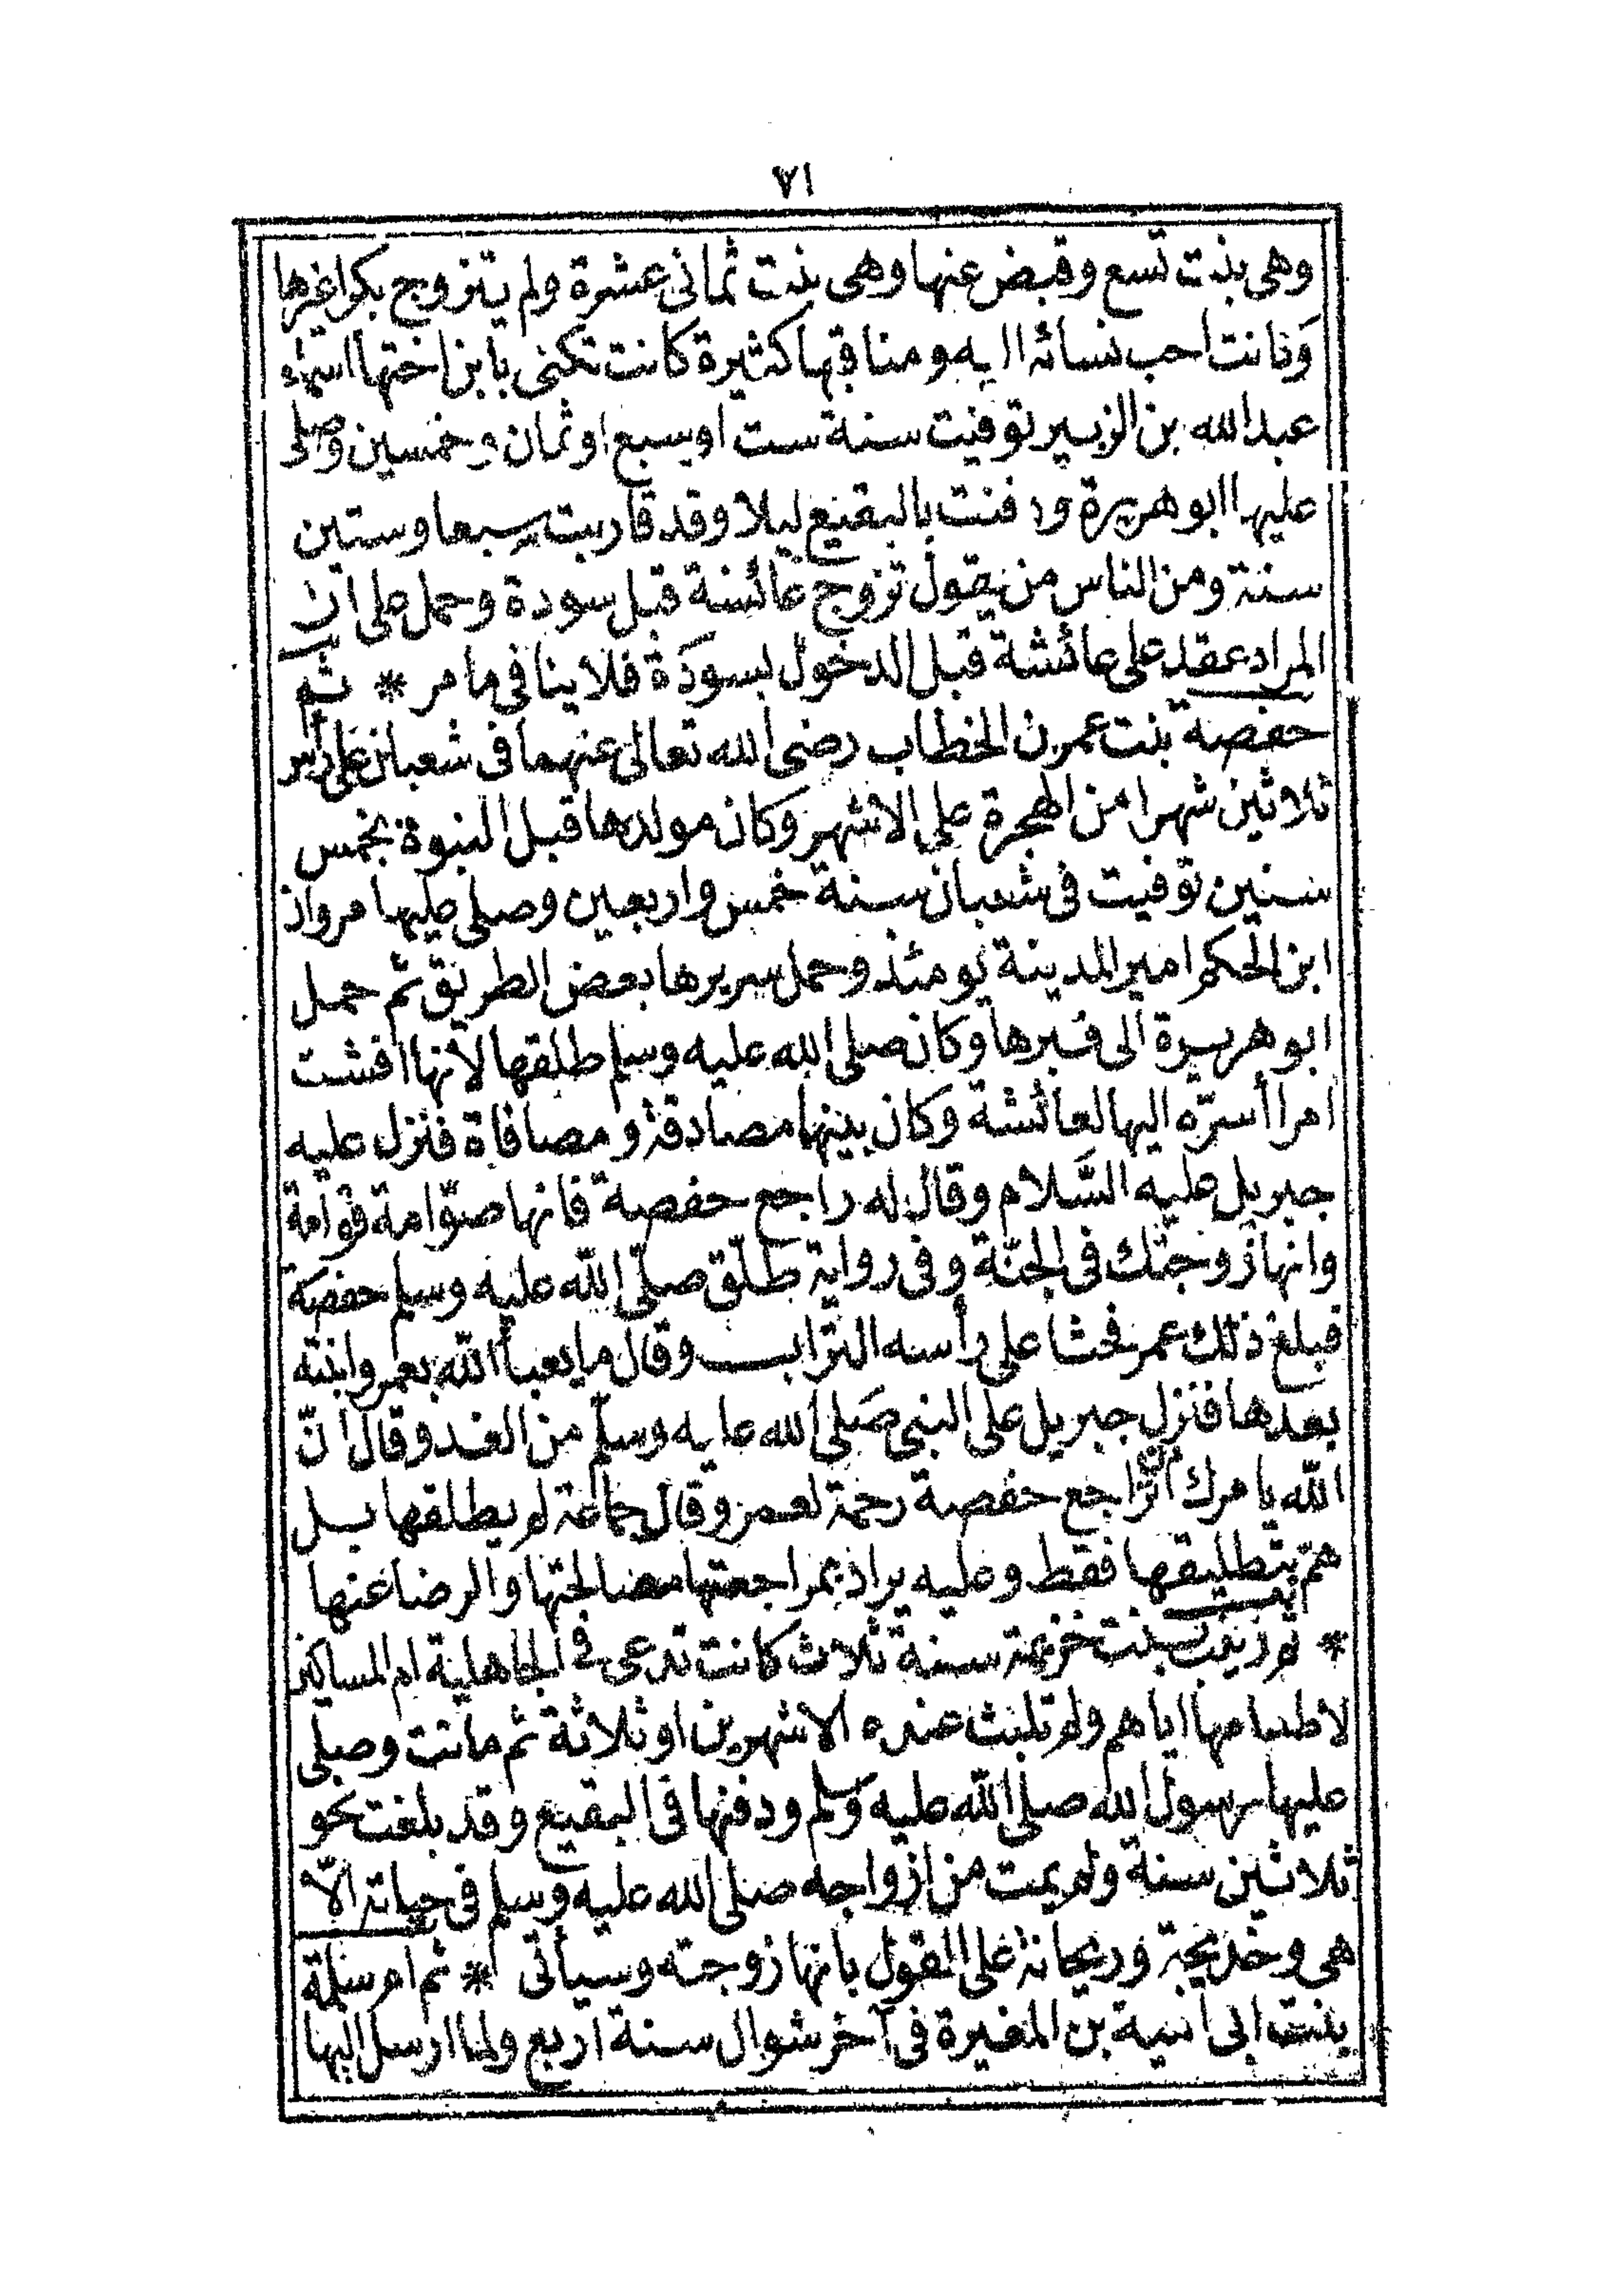 ٧١
وهى بنت تسع وقبض عنها وهى بنت ثمانى عشرة ولم يتزوج بكرا غيرها
وكانت احب نسائه اليه ومناقبها كثيرة كانت تكنى بابن اختها اسماء
عبد الله بن الزبير توفيت سنة ست او سبع او ثمان وخمسين وصلى
عليها ابو هريرة ودفنت بالبقيع ليلا وقد قاربت سبعا وستين
سنة ومن الناس من يقول تزوج عائشة قبل سودة وحمل على ان
المراد عقد على عائشة قبل الدخول بسودة فلا ينافى ما مر * ثم
حفصة بنت عمر بن الخطاب رضى الله تعالى عنهما فى شعبان على رأس
ثلاثين شهرا من الهجرة على الاشهر وكان مولدها قبل النبوة بخمس
سنين توفيت فى شعبان سنة خمس واربعين وصلى عليها مروان
ابن الحكم امير المدينة يومئذ وحمل سريرها بعض الطريق ثم حمل
ابو هريرة الى قبرها وكان صلى الله عليه وسلم طلقها لانها افشت
امرا أسرّه اليها لعائشة وكان بينهما مصادقة ومصافاة فنزل عليه
جبريل عليه السَّلام وقال له راجع حفصة فانها صوّامة قوّامة
وانها زوجتك فى الجنّة وفى رواية طلّق صلّى اللّه عليه وسلم حفصة
فبلغ ذلك عمر فحثا على رأسه التراب وقال ما يعبأ اللّه بعمر وابنته
بعدها فنزل جبريل على النبى صَلى الله عليه وسلّم من الغد وقال انّ
اللّه يامرك ان تراجع حفصة رحمة لعمر وقال جماعة لم يطلقها بل
همّ بتطليقها فقط وعليه يراد بمراجعتها مصالحتها والرضا عنها
* ثم زينب بنت خزيمة سنة ثلاث كانت تدعى فى الجاهلية ام المساكين
لاطعامها اياهم ولم تلبث عنده الا شهرين او ثلاثة ثم ماتت وصلى
عليها رسول الله صلى اللّه عليه وسلم ودفنها فى البقيع وقد بلغت نحو
ثلاثين سنة ولم يمت من ازواجه صلى الله عليه وسلم فى حياته الاّ
هى وخديجة وريحانة على القول بانها زوجته وسيأتى * ثم ام سلمة
بنت ابى امية بن المغيرة فى آخر شوال سنة اربع ولما ارسل اليها